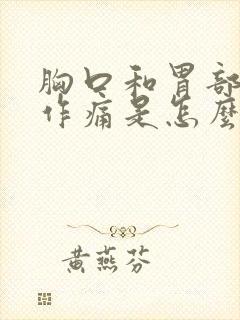 胸口和胃部
作痛是怎麼
黃燕芬